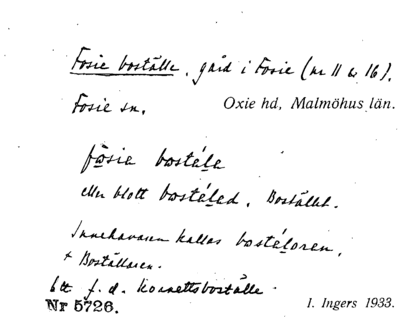 Fosie boställe, gård i Fosie (nr 11 o 16).
Fosie sn. Oxie hd, Malmöhus län.
fo̱sie bosté̱le
eller blott bosté̱led, Bostället.
Innehavaren kallas bosté̱loren,
+ Boställaren.
btt f. d. kornettsboställe
Nr 5726. I. Ingers 1933.